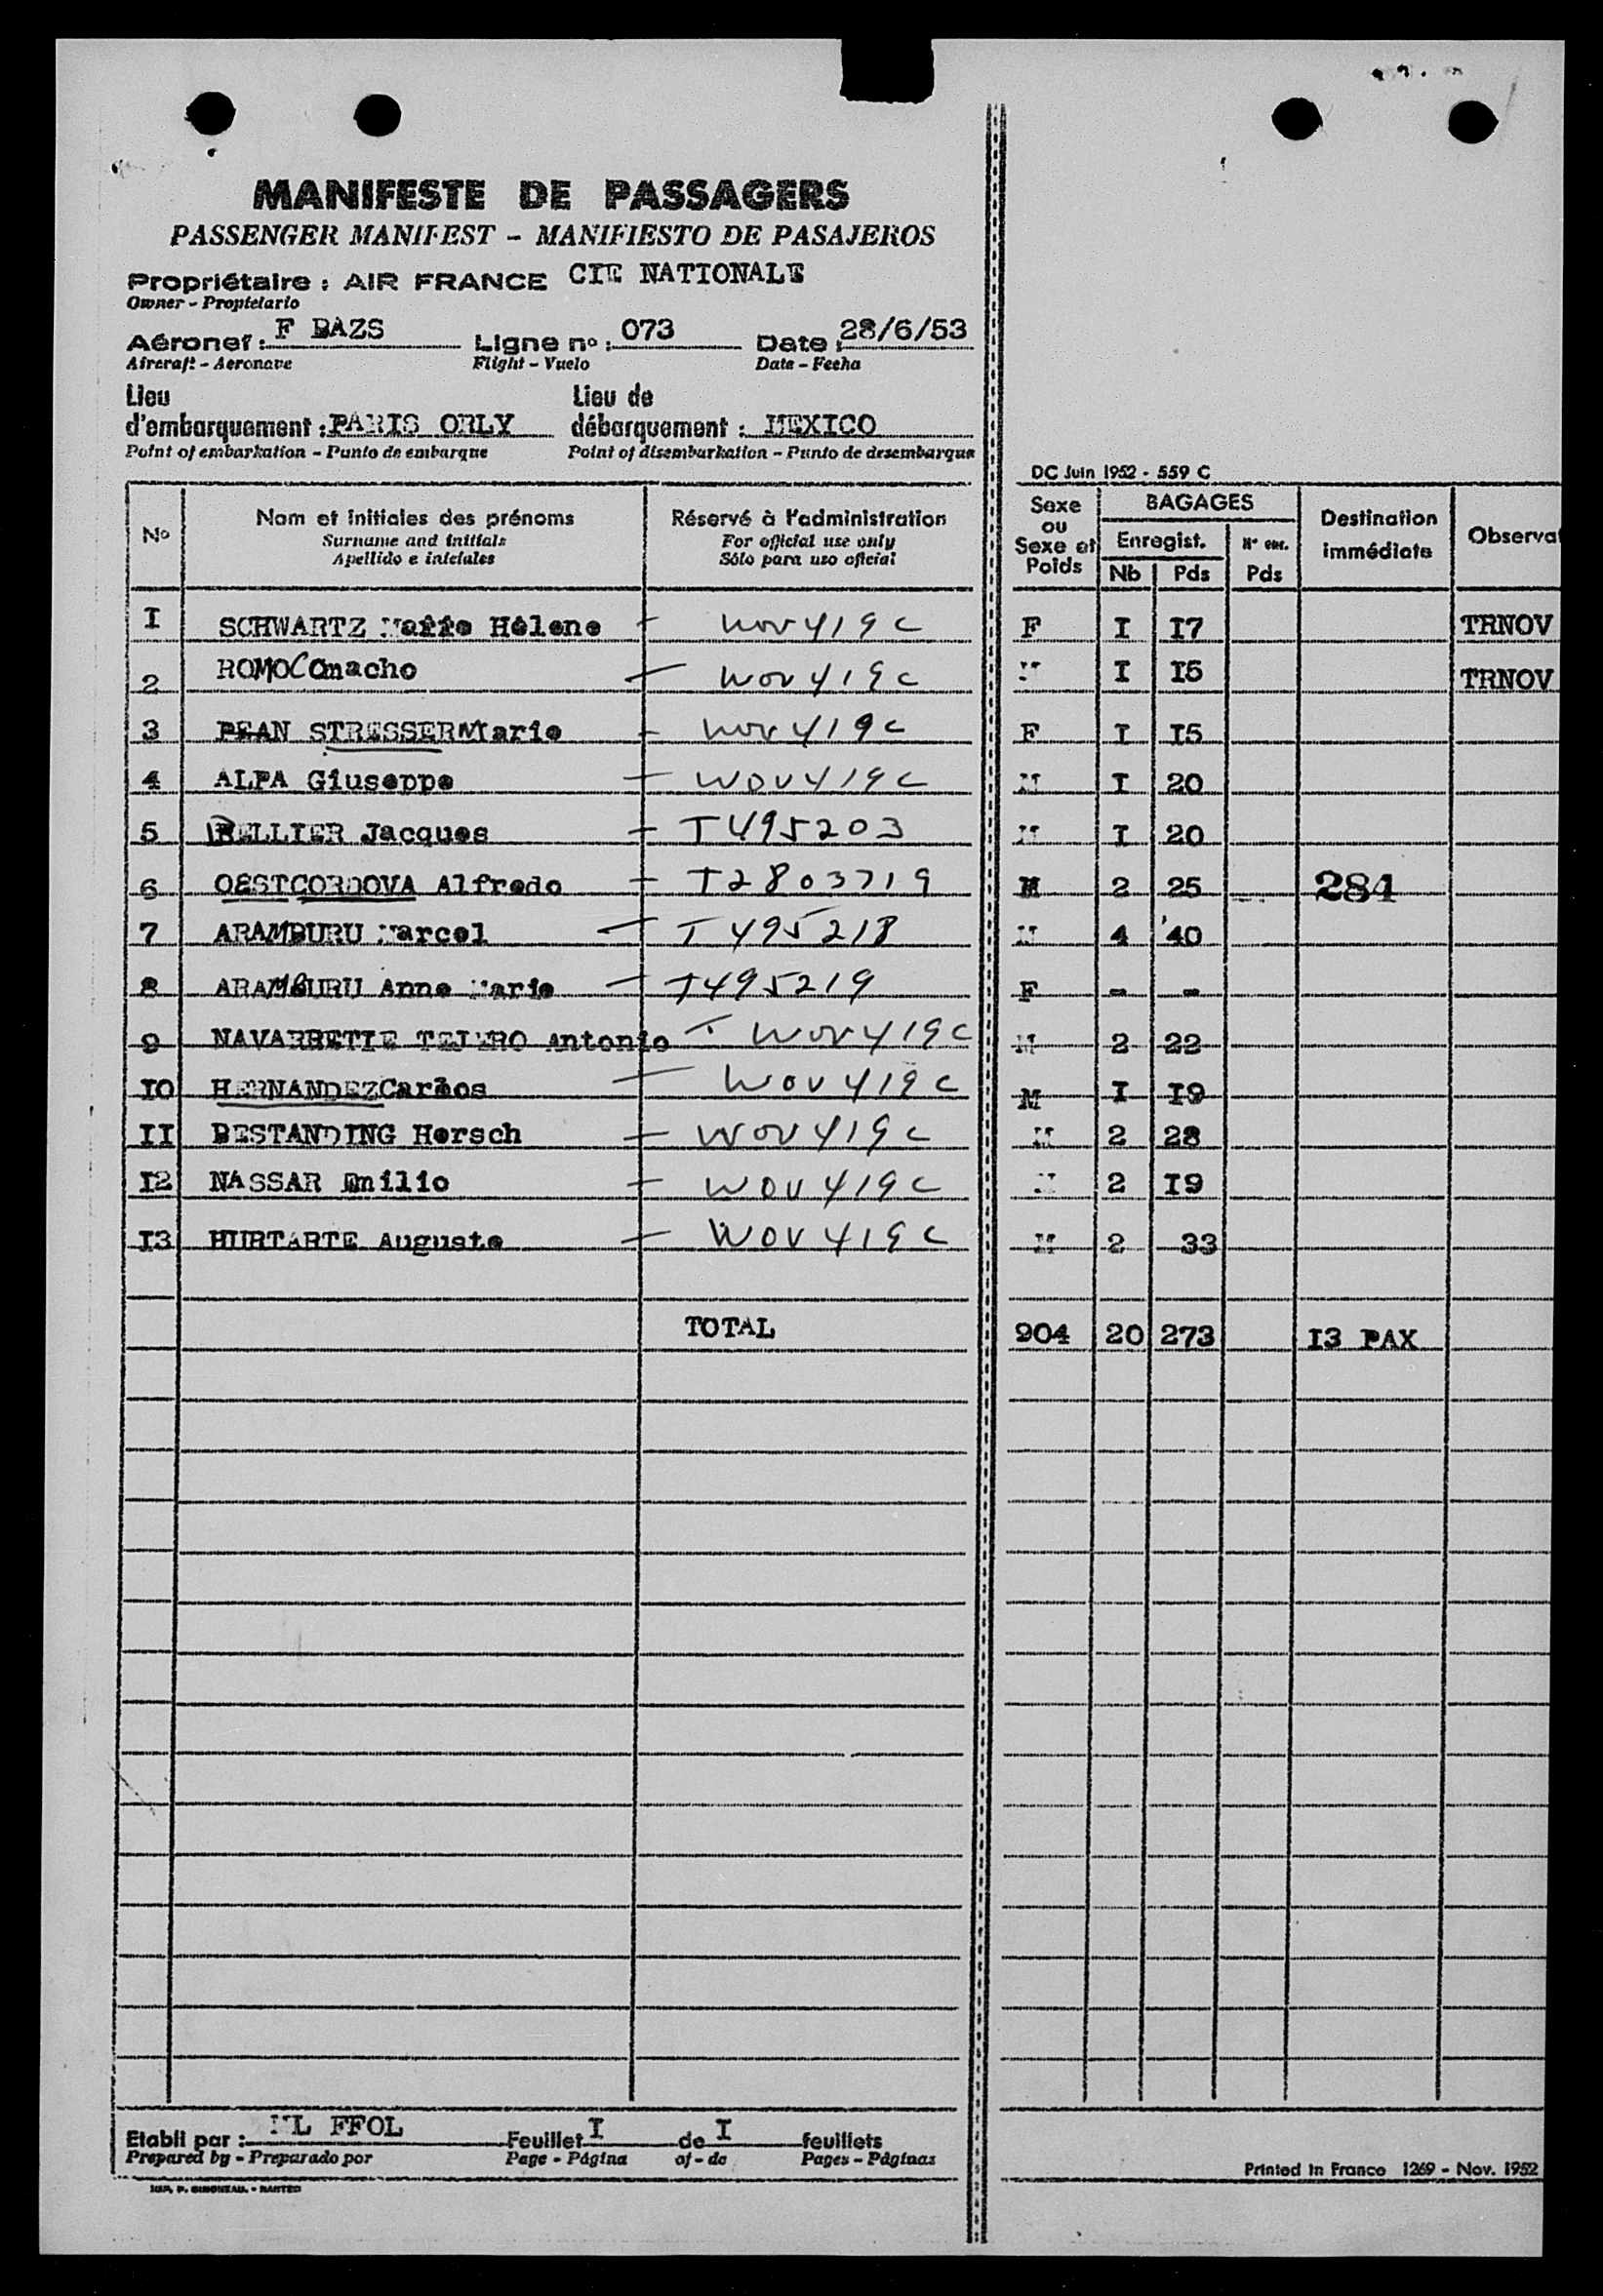 MANIFESTE DE PASSAGERS
PASSENGER MANIFEST - MANIFIESTO DE PASAJEROS
Propriétaire : AIR FRANCE CIE NATIONALE
Owner - Propietario
Aéronef : F BAZS Ligne no : 073 Date : 28/6/53
Aircraft - Aeronave Flight - Vuelo Date - Fecha
Lieu Lieu de
d'embarquement : PARIS ORLY débarquement : MEXICO
Point of embarkation - Punto de embarque Point of disembarkation - Punto de desembarque
DC Juin 1952 - 559 C
No Nom et initiales des prénoms Réservé à l'administration Sexe ou Sexe et Poids BAGAGES Destination immédiate Observat
Surname and initials For official use only Enregist. N° enr.
Apellido e iniciales Sólo para uso oficial Nb Pds Pds
I SCHWARTZ Hélene - Nov 419c F I I7 TRNOV
2 ROMO Camacho - Wov 419c M I I5 TRNOV
3 PEAN STRESSER Marie - Nov 419c F I I5
4 ALPA Giuseppe - Wov 419c M I 20
5 PELLIER Jacques - T495203 M I 20
6 OESTCORDOVA Alfredo - T2803719 M 2 25 284
7 ARAMBURU Marcel - T495218 M 4 40
8 ARAMBURU Anne Marie - T495219 F - -
9 NAVARRETIE TEJERO Antonio - Wov 419c M 2 22
I0 HERNANDEZ Carlos - Wov 419c M I I9
II BESTANDING Hersch - Wov 419c M 2 28
I2 NASSAR Emilio - Wov 419c M 2 I9
I3 HURTARTE Auguste - Wov 419c M 2 33
TOTAL 904 20 273 I3 PAX
Etabli par : ML FFOL Feuillet I de I feuillets
Prepared by - Preparado por Page - Página of - de Pages - Páginas
Printed in France 1269 - Nov. 1952